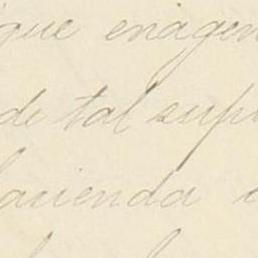 que enagen
de tal supr
hacienda